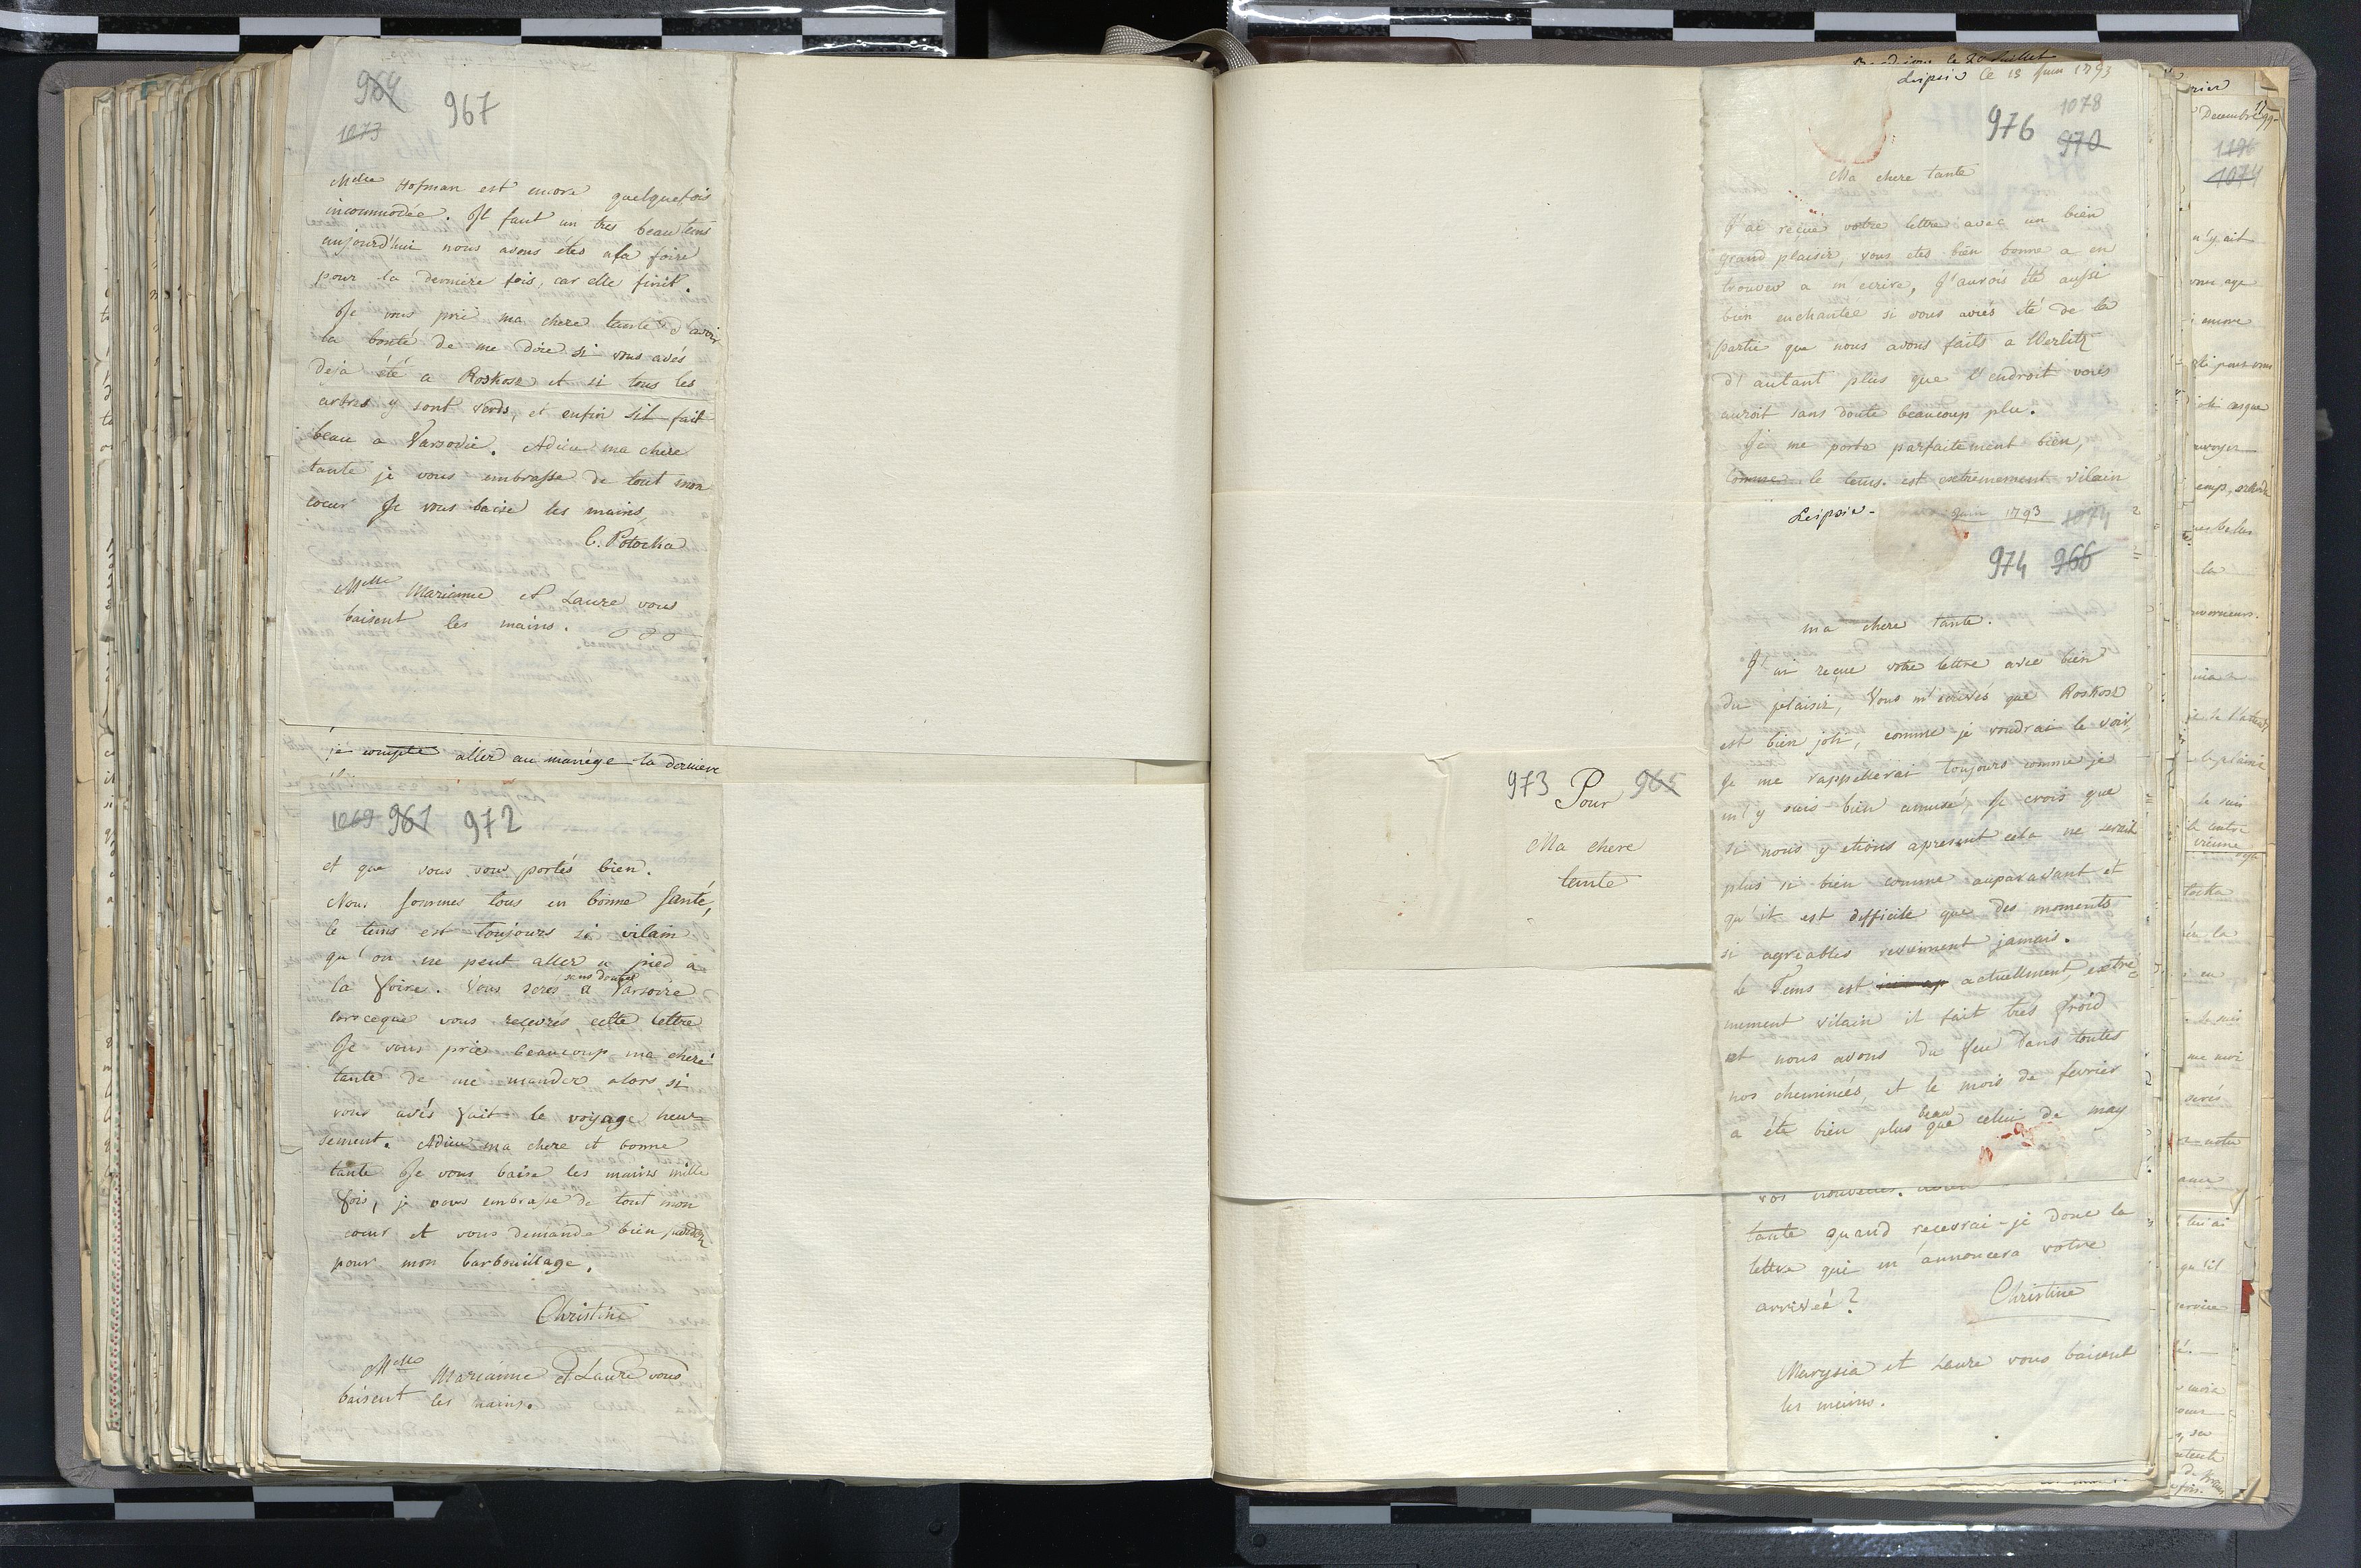 964 967
1073
Melle Hofman est encore quelquefois
incommodée. Il fait un tres beau tems
aujourd'hui nous avons étés a la foire
pour la derniere fois, car elle finit.
Je vous prie ma chere tante d'avoir
la bonté de me dire si vous avés
deja été a Roskosz et si tous les
arbres y sont verds, et enfin s'il fait
beau a Varsovie. Adieu ma chere
tante je vous embrasse de tout mon
coeur Je vous baise les mains
C. Potocka
Melle Marianne et Laure vous
baisent les mains.
je compte aller au manége la derniere
1069 961 972
et que vous vous portés bien.
Nous sommes tous en bonne santé,
le tems est toujours si vilain
qu'on ne peut aller a pied a
la foire. Vous serés sans doute a Varsovie
lorsceque vous recevrés cette lettre
Je vous prie beaucoup ma chere
tante de me mander alors si
vous avés fait le voyage heur
sement. Adieu ma chere et bonne
tante Je vous baise les mains mille
fois, je vous embrasse de tout mon
coeur et vous demande bien pardon
pour mon barbouillage.
Christine
Melle Marianne et Laure vous
baisent les mains.
973 Pour 965
Ma chere
tante
le 20 Juillet
Leipsic le 13 Juin 1793
1078
976 970
Ma chere tante
J'ai reçue votre lettre avec un bien
grand plaisir, vous etes bien bonne a en
trouver a m'ecrire, J'aurois été aussi
bien enchantée si vous aviés été de la
partie que nous avons faits a Werlitz
d'autant plus que l'endroit vous
auroit sans doute beaucoup plu.
Je me porte parfaitement bien,
comme le tems est extremement vilain
Leipsic - Juin 1793 1074
974 966
ma chere tante.
J'ai reçue votre lettre avec bien
du plaisir, Vous m'ecrivés que Roskosz
est bien joli, comme je voudrai le voir,
Je me rappellerai toujours comme je
m'y suis bien amusé, Je crois que
si nous y etions apresent cela ne serait
plus si bien comme auparavant et
qu'il est difficile que des moments
si agréables reviennent jamais.
Le Tems est actuellement extre
mement vilain il fait trés froid
et nous avons du feu dans toutes
nos cheminées, et le mois de fevrier
a été bien plus beau que celui de may
vos nouvelles.
tante quand recevrai-je donc la
lettre qui m'annoncera votre
arrivée?
Christine
Marysia et Laure vous baisent
les mains.
Decembre
1196
1074
n'y ait